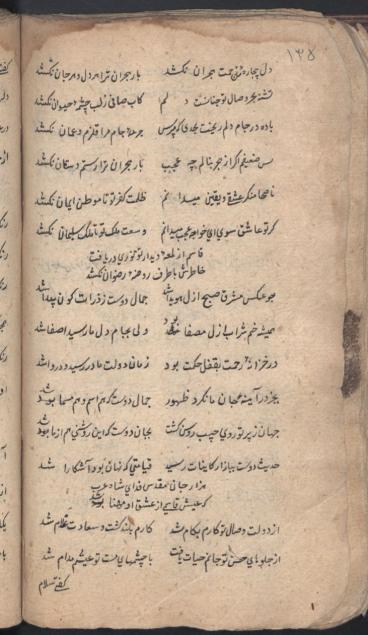 ۱۳۵
دل بیچاره من زحمت هجران نکشد بار هجران ترا هر دل و هر جان نکشد
تشنه بحر وصال تو چنانست دلم کاب صافی ز لب چشمه حیوان نکشد
باده در جام دلم ریخت بحدی که مپرس جرعه جام مرا قلزم و عمان نکشد
من ضعیفم اگر از هجر بنالم چه عجب بار هجران ترا رستم دستان نکشد
ناصحا منکر عشقی و یقین میدانم ظلمت کفر تو تا موطن ایمان نکشد
گر تو عاشق شوی ای خواجه عجب میدانم وسعت ملک تو تا ملک سلیمان نکشد
قاسم از لمعه دیدار تو نوری دریافت
خاطرش باطرف روضه رضوان نکشد
چو عکس مشرق صبح ازل هویدا شد جمال دوست ز ذرات کون پیدا شد
همیشه خم شراب ازل مصفا بود ولی بجام دل ما رسید اصفا شد
در خزانه رحمت بقفل حکمت بود زمان دولت ما در رسید و در وا شد
بجز در آینه جهان ما نکرد ظهور جمال دوست که هم اسم و هم مسما شد
جهان ز پرتو روی حبیب روشن گشت بجان دوست که این روشنی هم از ما شد
حدیث دوست ببازار کاینات رسید قیامتی که نهان بود آشکارا شد
هزار جان مقدس فدای شاه عرب
که عیش قاسمی از عشق او مهنا شد
از دولت وصال تو کارم بکام شد کارم بلند گشت و سعادت غلام شد
از جلوهای حسن تو جانم حیات یافت با چشمهای مست تو عیشم مدام شد
گفتی سلام